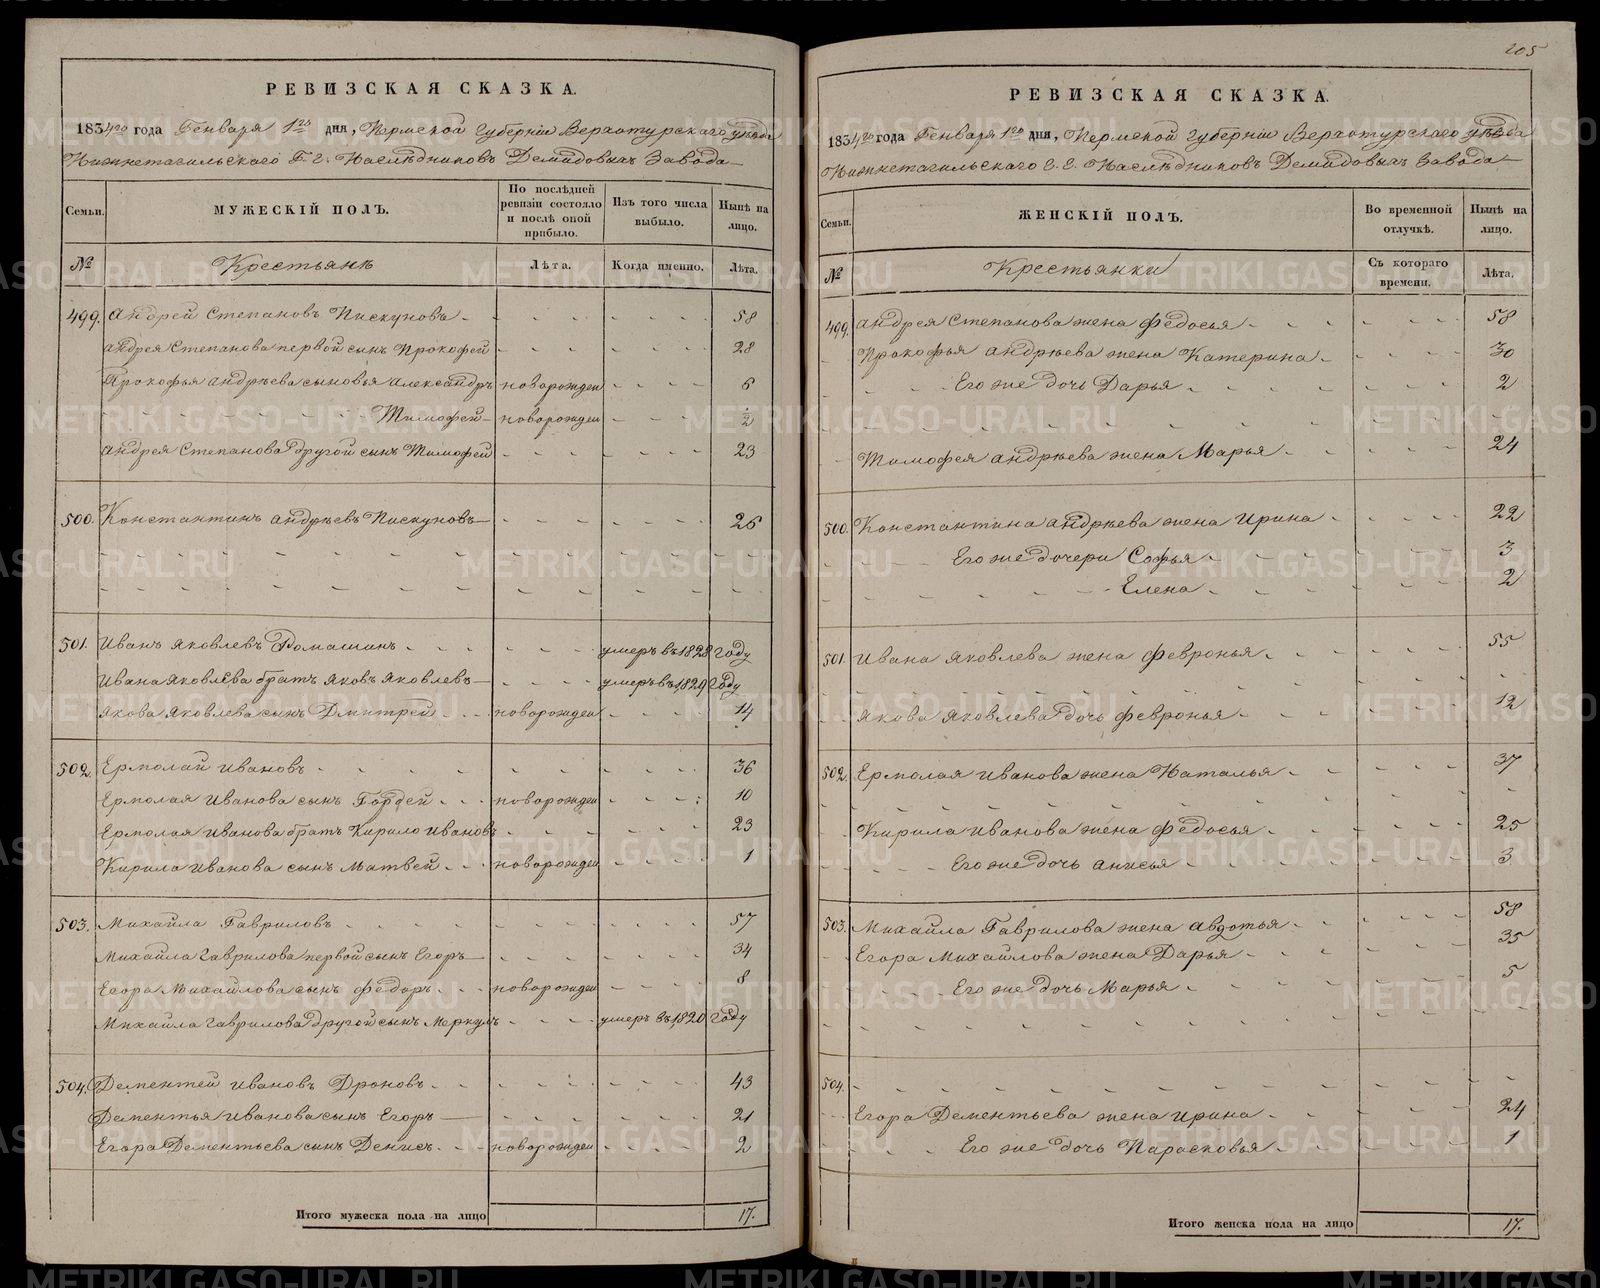 РЕВИЗСКАЯ СКАЗКА.
1834го года Генваря 1го дня, Пермской Губерніи Верхотурскаго уѣзда
Нижнетагильскаго Г. Г. Наслѣдниковъ Демидовыхъ Завода
Семьи. МУЖЕСКІЙ ПОЛЪ. По послѣдней ревизіи состояло и послѣ оной прибыло. Изъ того числа выбыло. Нынѣ на лицо.
№ Крестьянъ Лѣта. Когда именно. Лѣта.
499. Андрей Степановъ Пискуновъ 58
Андрея Степанова первой сынъ Прокофей 28
Прокофья Андрѣева сыновья Александръ новорожден 6
Тимофей новорожден ½
Андрея Степанова другой сынъ Тимофей 23
500. Константинъ Андрѣевъ Пискуновъ 26
501. Иванъ Яковлевъ Ромашинъ умеръ въ 1828 году
Ивана Яковлева братъ Яковъ Яковлевъ умеръ въ 1829 году
Якова Яковлева сынъ Дмитрей новорожден 14
502. Ермолай Ивановъ 36
Ермолая Иванова сынъ Гордей новорожден 10
Ермолая Иванова братъ Кирило Ивановъ 23
Кирила Иванова сынъ Матвей новорожден 1
503. Михайла Гавриловъ 57
Михайла Гаврилова первой сынъ Егоръ 34
Егора Михайлова сынъ Федоръ новорожден 8
Михайла Гаврилова другой сынъ Меркулъ умеръ въ 1820 году
504. Дементей Ивановъ Дроновъ 43
Дементья Иванова сынъ Егоръ 21
Егора Дементьева сынъ Денисъ новорожден 2
Итого мужеска пола на лицо 17.
205
РЕВИЗСКАЯ СКАЗКА.
1834го года Генваря 1го дня, Пермской Губерніи Верхотурскаго уѣзда
Нижнетагильскаго Г. Г. Наслѣдниковъ Демидовыхъ Завода
Семьи. ЖЕНСКІЙ ПОЛЪ. Во временной отлучкѣ. Нынѣ на лицо.
№ Крестьянки Съ котораго времени. Лѣта.
499. Андрея Степанова жена Федосья 58
Прокофья Андрѣева жена Катерина 30
Его же дочь Дарья 2
Тимофея Андрѣева жена Марья 24
500. Константина Андрѣева жена Ирина 22
Его же дочери Софья 3
Елена 2
501. Ивана Яковлева жена Февронья 55
Якова Яковлева дочь Февронья 12
502. Ермолая Иванова жена Наталья 37
Кирила Иванова жена Федосья 25
Его же дочь Анисья 3
503. Михайла Гаврилова жена Авдотья 58
Егора Михайлова жена Дарья 35
Его же дочь Марья 5
504.
Егора Дементьева жена Ирина 24
Его же дочь Парасковья 1
Итого женска пола на лицо 17.
METRIKI.GASO-URAL.RU